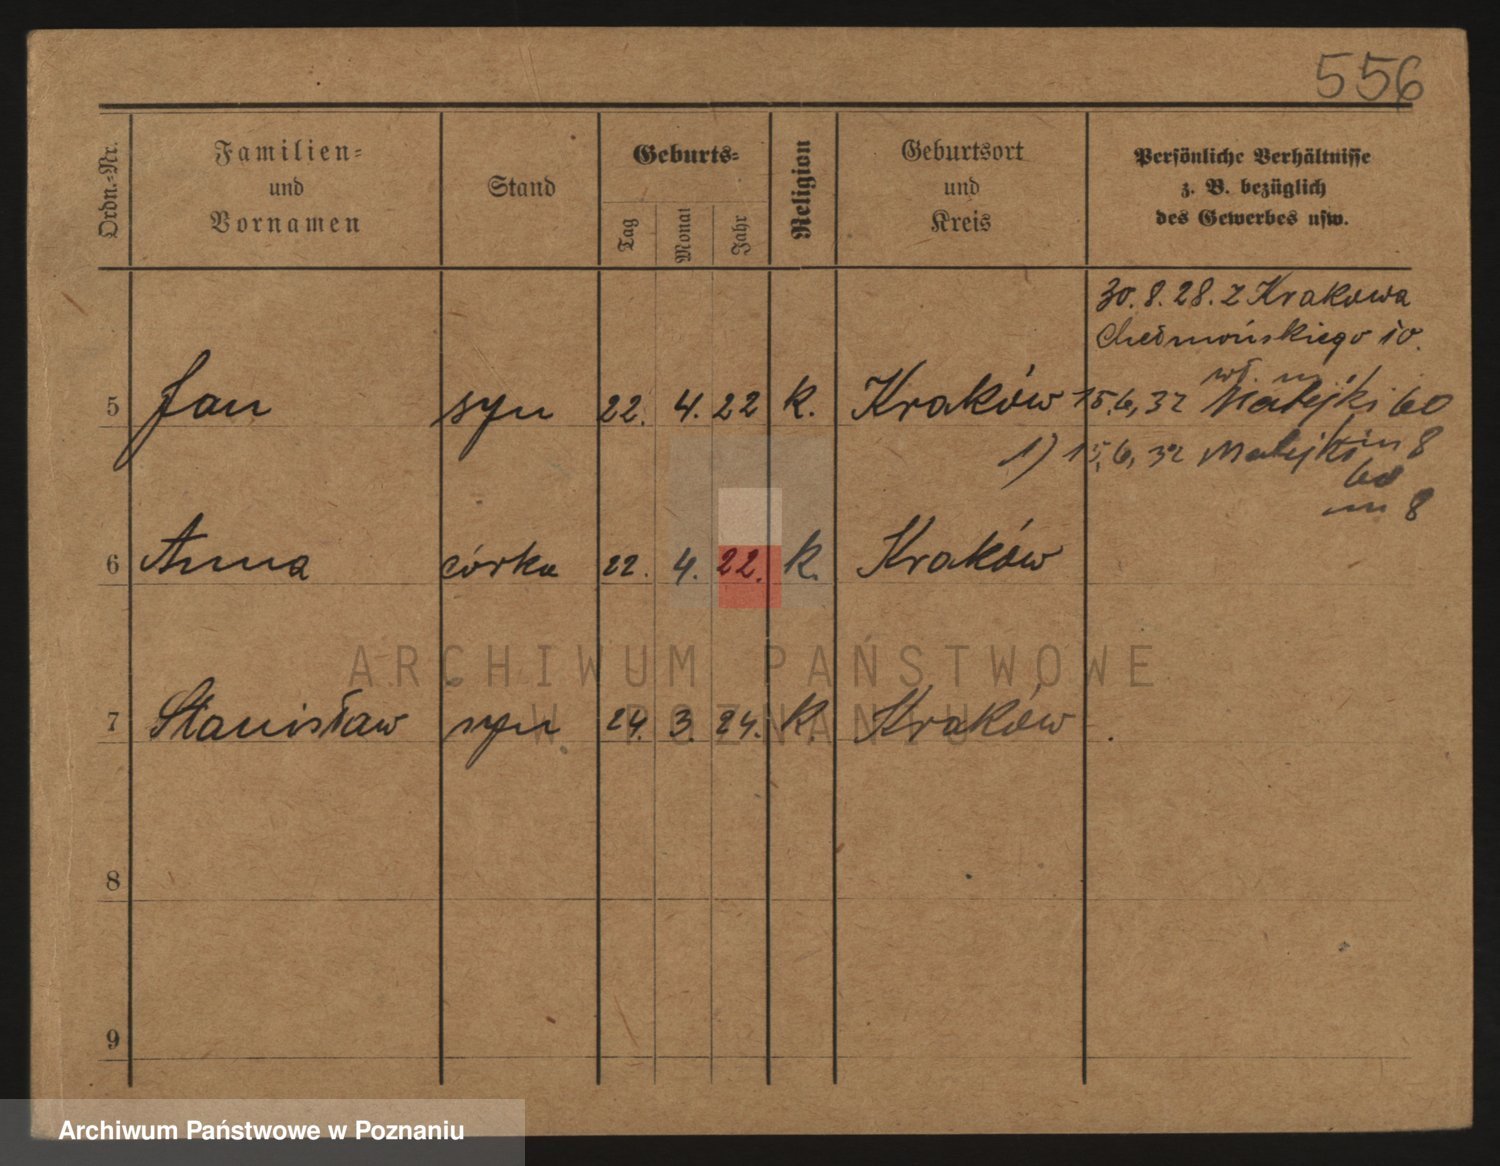 556
Ordn.-Nr.
Familien-
und
Vornamen
Stand
Geburts-
Tag
Monat
Jahr
Religion
Geburtsort
und
Kreis
Persönliche Verhältnisse
z. B. bezüglich
des Gewerbes usw.
30. 8. 28. z Krakowa
Chełmońskiego 10.
wł. m.
5 Jan syn 22. 4. 22 k. Kraków 15,6,32 Matejki 60
m 8
1) 15,6,32 Matejki
60
m 8
6 Anna córka 22. 4. 22. k. Kraków
ARCHIWUM PAŃSTWOWE
7 Stanisław syn 24. 3. 24. k. Kraków
W POZNANIU
8
9
Archiwum Państwowe w Poznaniu